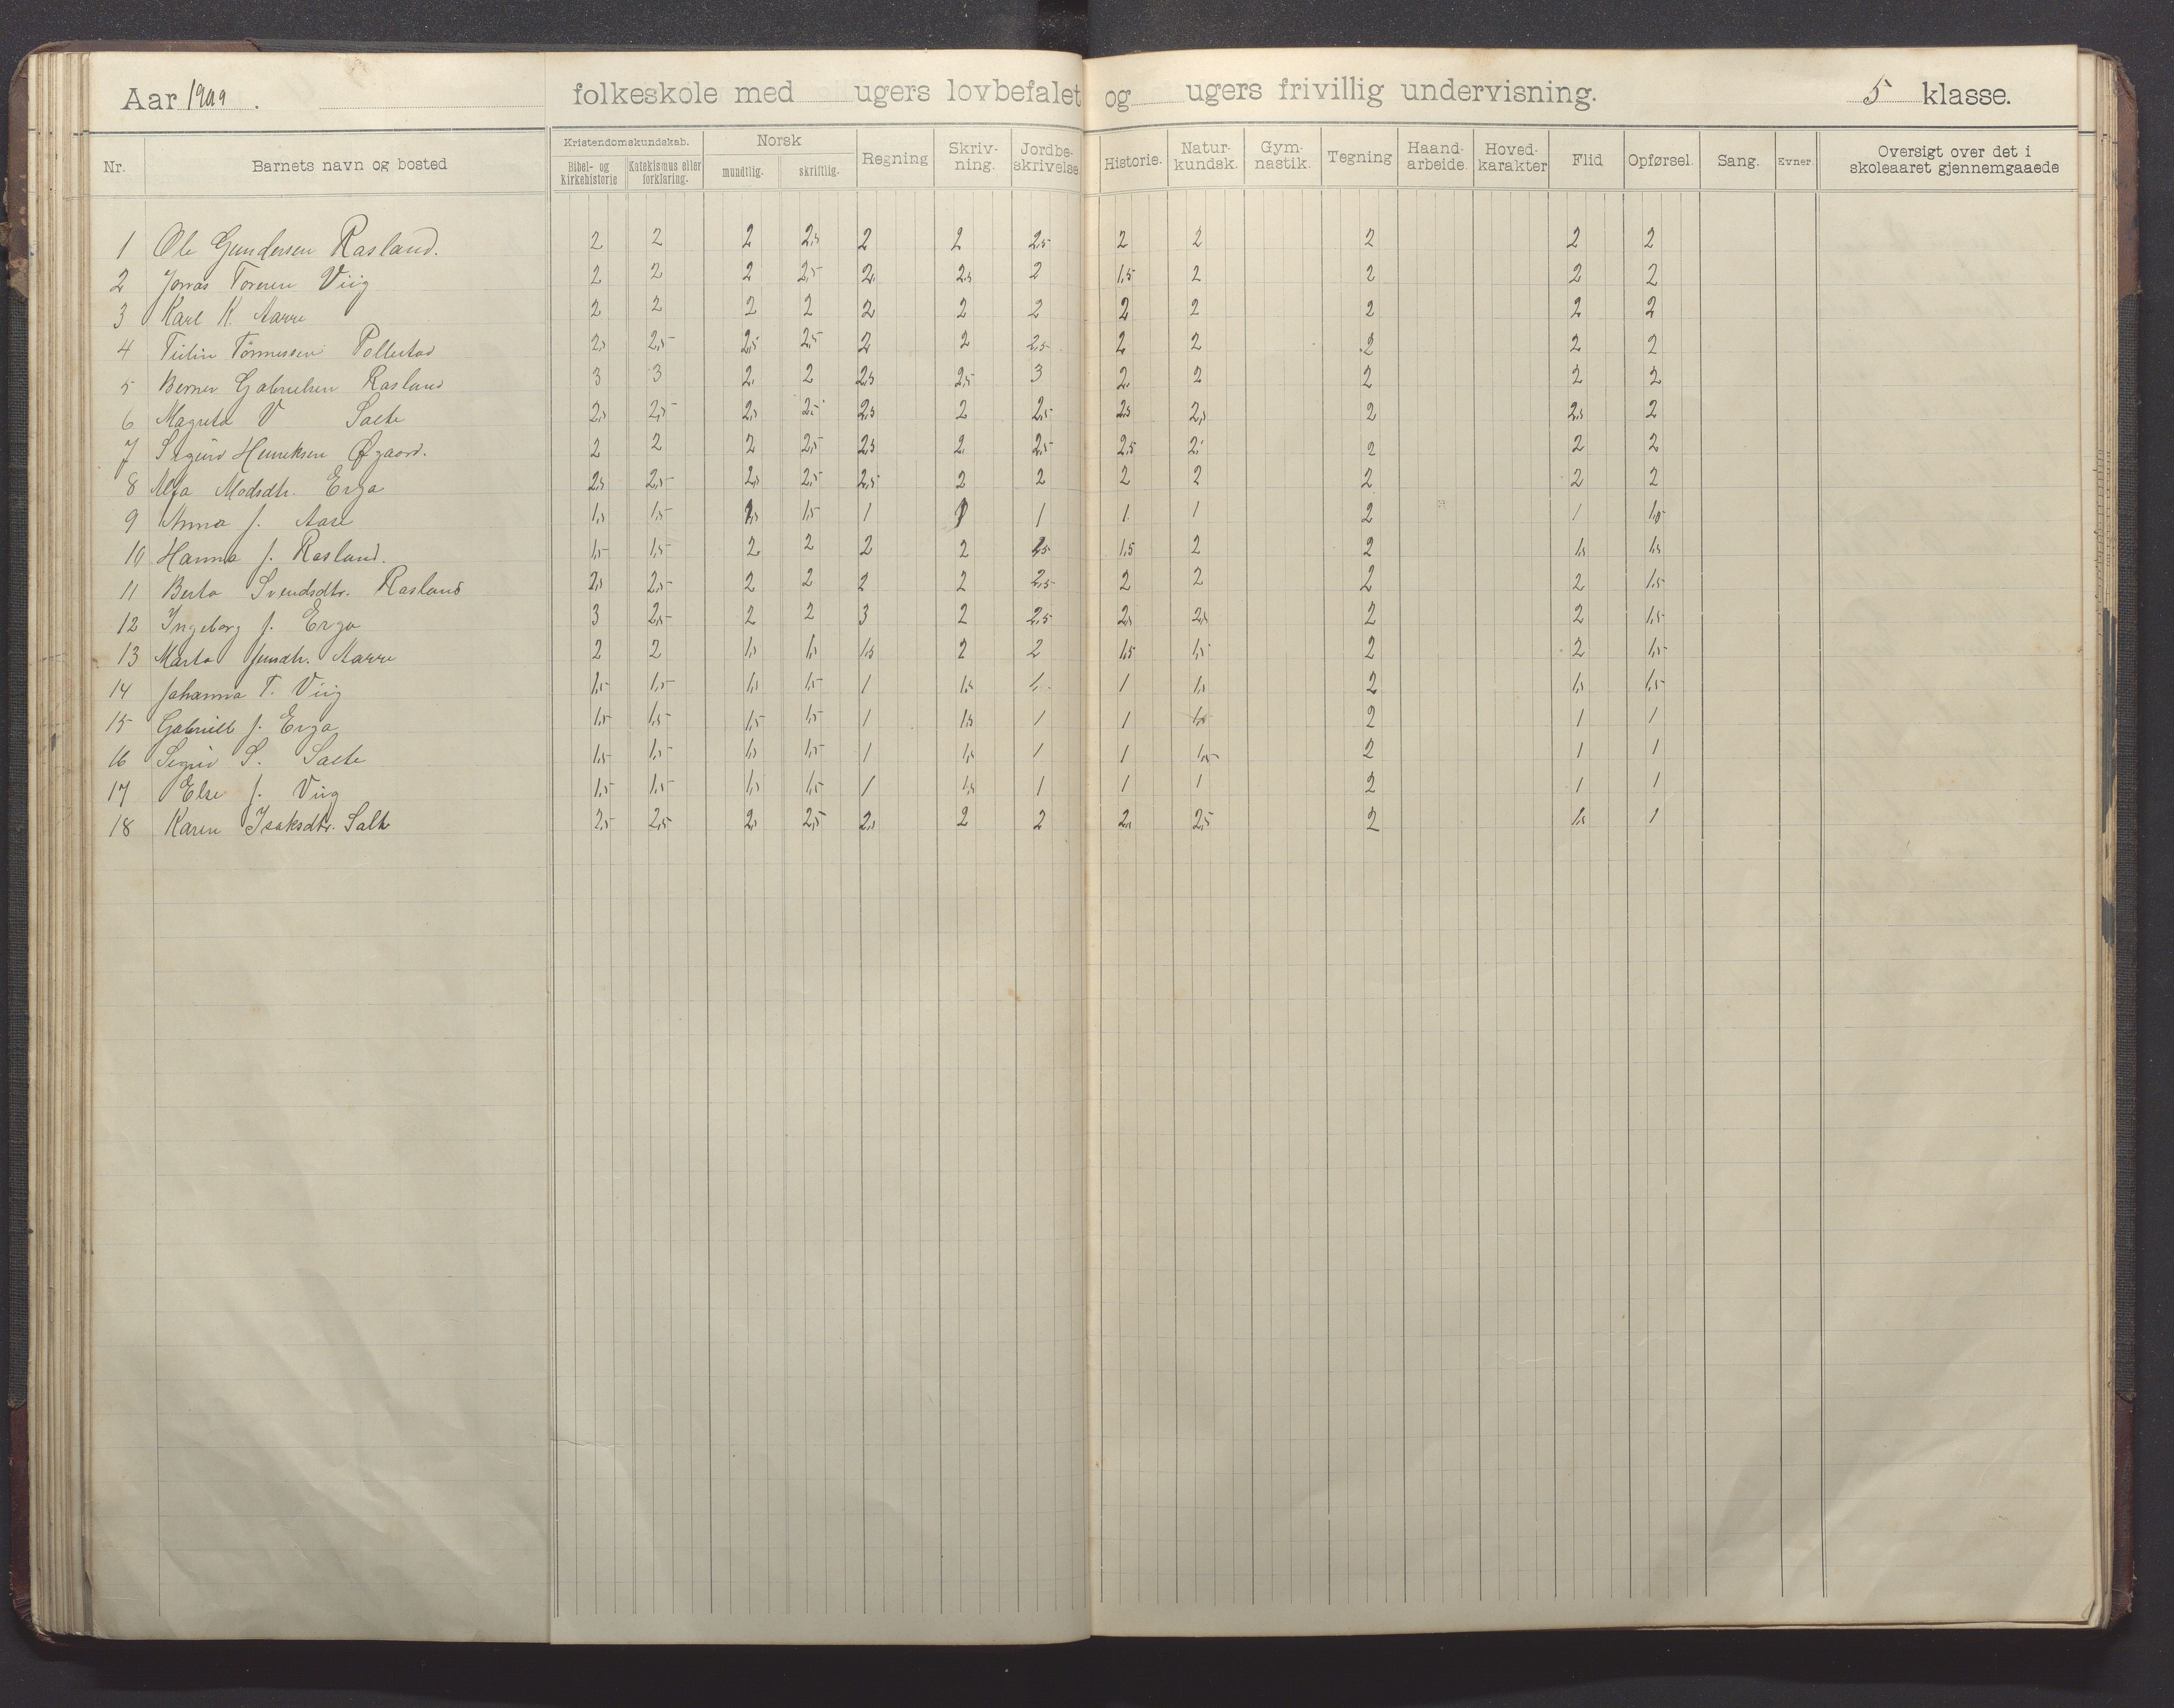 Aar 1909. folkeskole med ugers lovbefalet og ugers frivillig undervisning. 5 klasse.
Nr. Barnets navn og bosted Kristendomskundskab. Bibel- og Kirkehistorie Katekismus eller forklaring. Norsk mundtlig. skriftlig. Regning Skriv-ning. Jordbe-skrivelse. Historie. Natur-kundsk. Gym-nastik. Tegning Haand-arbeide. Hoved-karakter Flid Opførsel. Sang. Evner. Oversigt over det i skoleaaret gjennemgaaede
1 Ole Gundersen Rasland. 2 2 2 2,5 2 2 2,5 2 2 2 2 2
2 Jonas Toresen Viig 2 2 2 2,5 2, 2,5 2 1,5 2 2 2 2
3 Karl K. Aarre 2 2 2 2 2 2 2 2 2 2 2 2
4 Tönnessen Pollestad 2,5 2,5 2,5 2,5 2 2 2,5 2 2 2 2 2
5 Berner Gabrielsen Rasland 3 3 2, 2 2,5 2,5 3 2, 2 2 2 2
6 Magreta V Salte 2,5 2,5 2,5 2,5 2,5 2 2,5 2,5 2,5 2 2,5 2
7 Sigurd Henriksen Øgaard. 2 2 2 2,5 2,5 2, 2,5 2,5 2, 2 2 2
8 Alfa Madsdtr. Erga 2,5 2,5 2,5 2,5 2,5 2 2 2 2 2 2 2
9 Anna J. Aase 1,5 1,5 1,5 1 1 1 1 2 1 1,5
10 Hanna J. Rasland. 1,5 1,5 2 2 2 2 2,5 1,5 2 2 1,5 1,5
11 Berta Svendsdtr. Rasland 2,5 2,5 2 2 2 2 2,5 2 2 2 2 1,5
12 Ingeborg J. Erga 3 2,5 2 2 3 2 2,5 2,5 2,5 2 2 1,5
13 Marta Jensdtr. Aarre 2 2 1,5 1,5 1,5 2 2 1,5 1,5 2 2 1,5
14 Johanna T. Viig 1,5 1,5 1,5 1,5 1 1,5 1, 1 1,5 2 1,5 1,5
15 Gabriell J. Erga 1,5 1,5 1,5 1,5 1 1,5 1 1 1,5 2 1 1
16 Sigrid S. Salte 1,5 1,5 1,5 1,5 1 1,5 1 1 1,5 2 1 1
17 Else J. Viig 1,5 1,5 1,5 1,5 1 1,5 1 1 1 2 1 1
18 Karen Isaksdtr. Salte 2,5 2,5 2,5 2,5 2,5 2 2 2,5 2,5 2 1,5 1